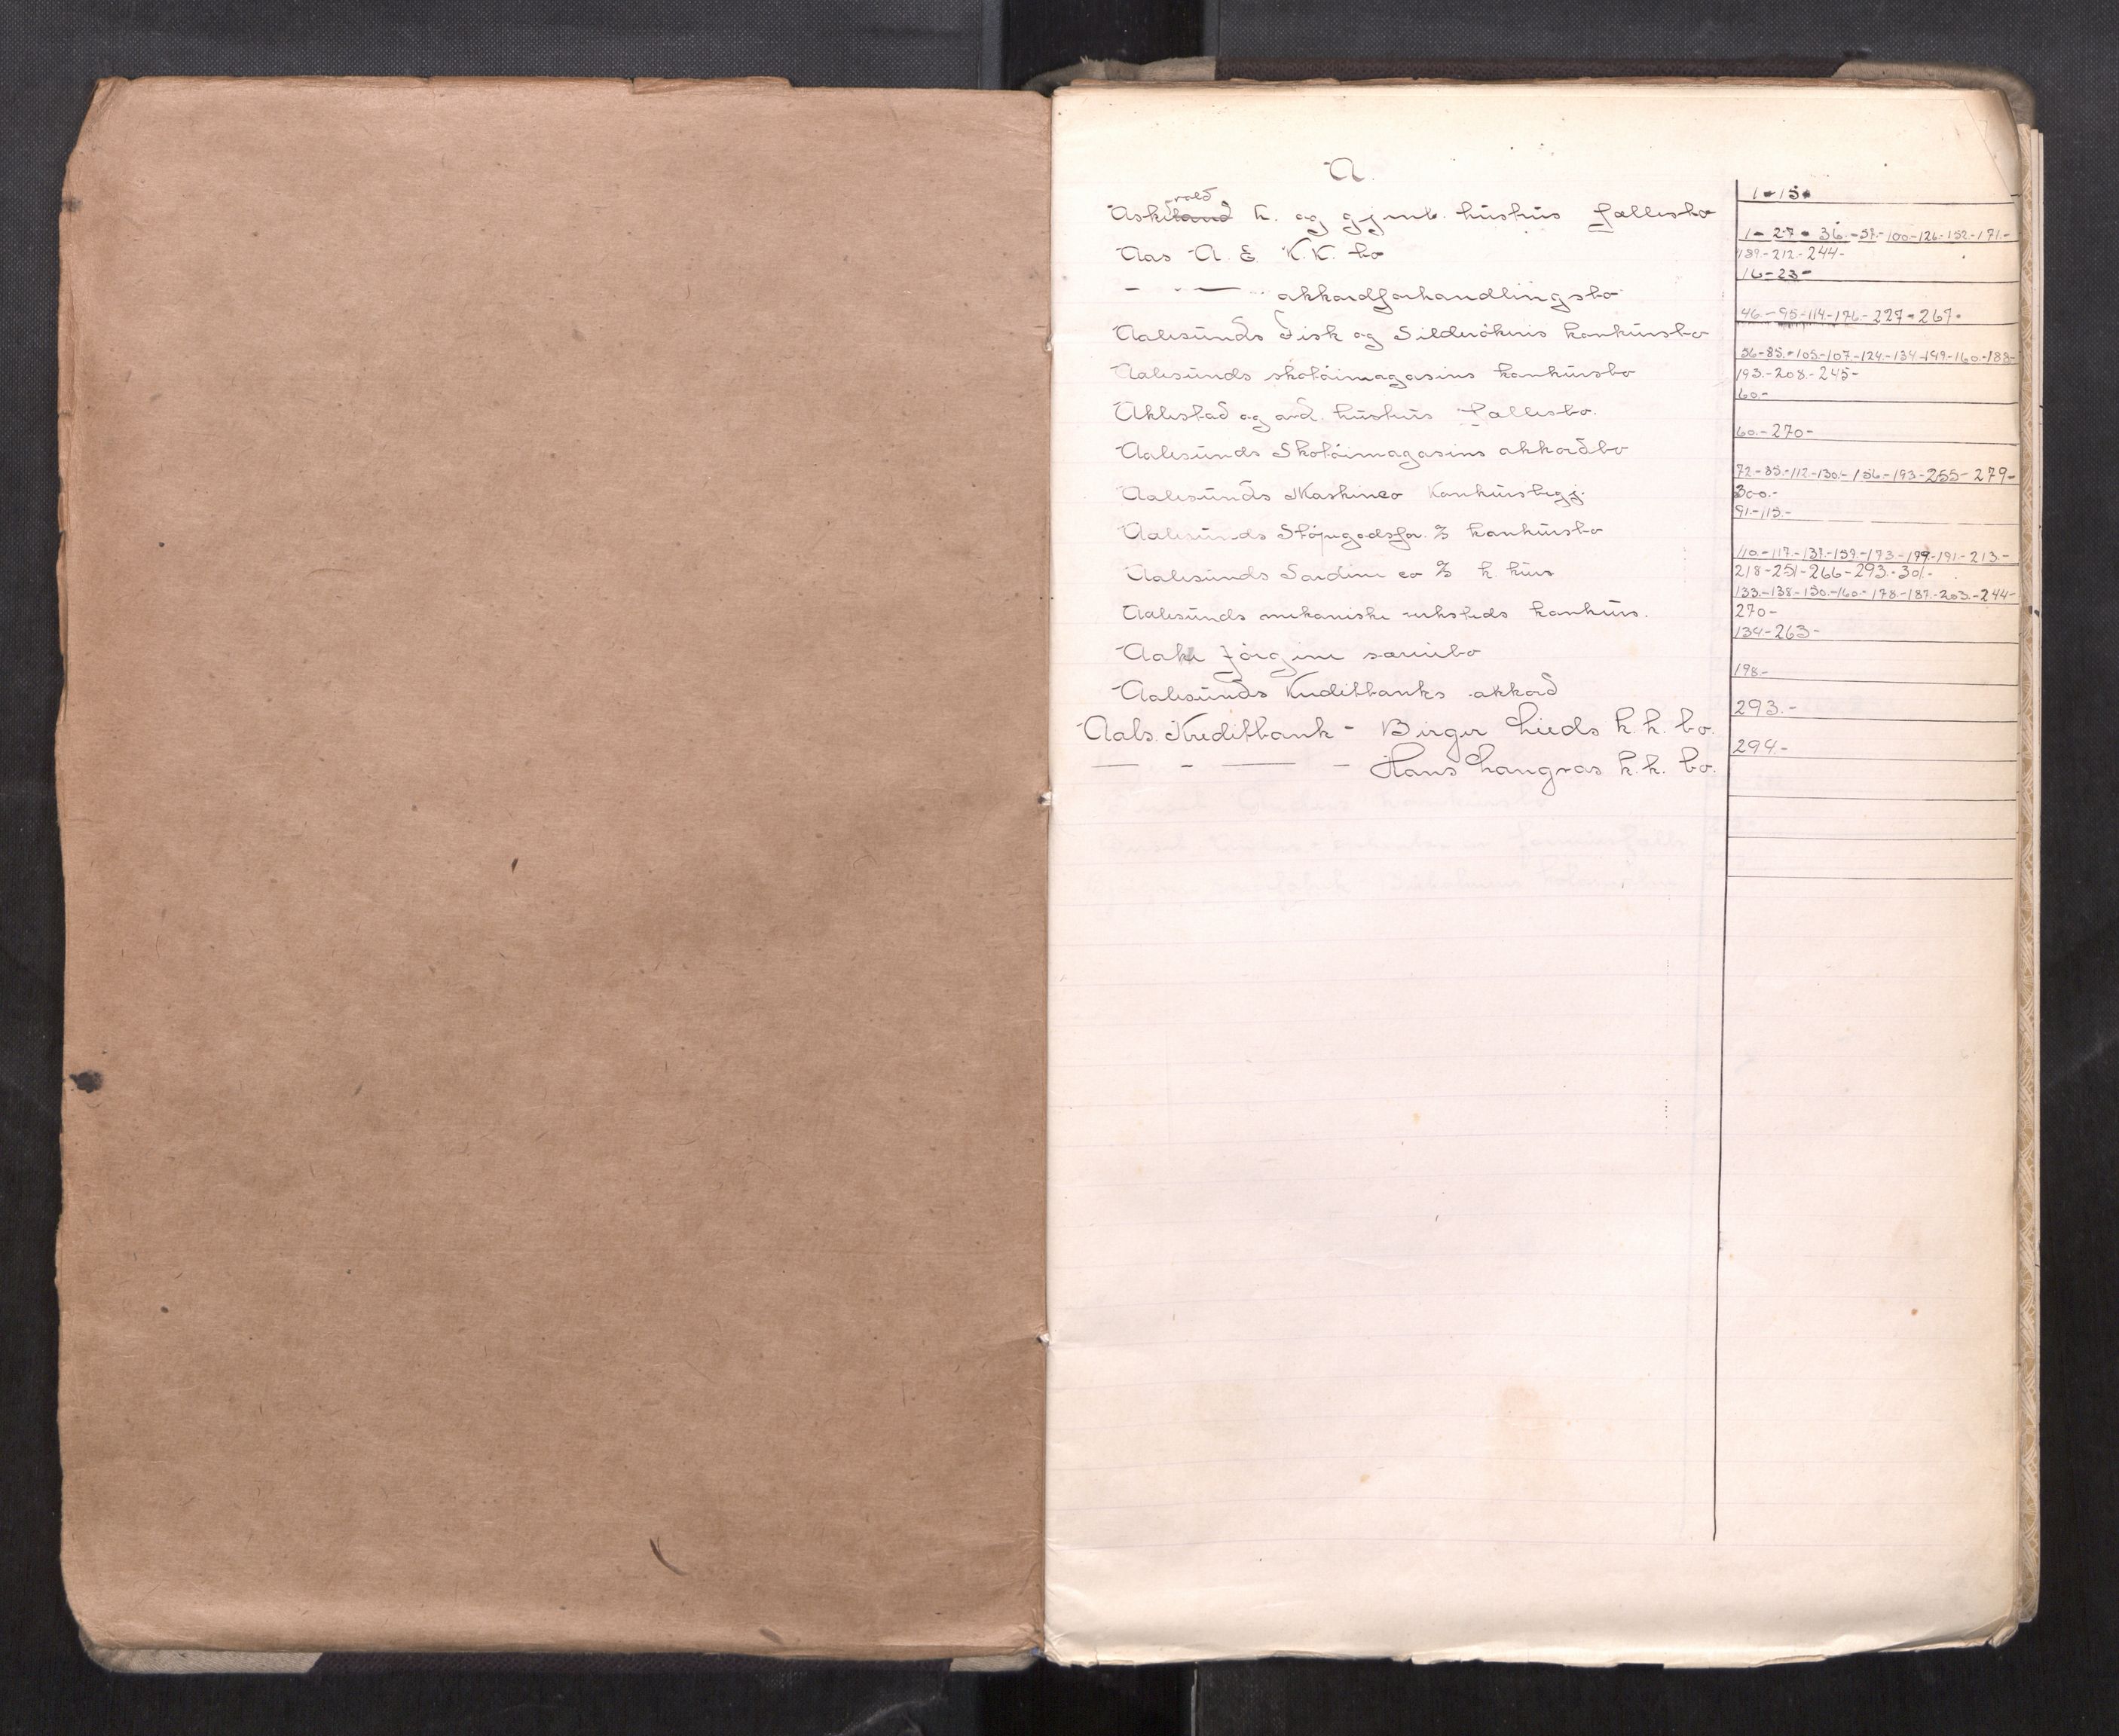 A.
vold
Askeland K. og gjenl. hustrus fællesbo 1-15-
Aas A. E. K.K. bo 1-27-36.-57.-100.-126-152-171.-
189.-212.-244-
— " — akkordforhandlingsbo 16-23-
Aalesunds Fisk og Silderökeris konkursbo 46.-95-114.-176.-227-267.
Aalesunds skotöimagasins konkursbo 56-85.-105-107-124.-134-149.-160.-188-
193.-208.-245-
Aklestad og avd. hustrus fællesbo. 60.-
Aalesunds Skotöimagasins akkordbo 60.-270-
Aalesunds Maskinco Konkursbegj. 72-85.-112-130.-156.-193-255-279-
300.-
Aalesunds Stöpegodsfor. % konkursbo 91.-115.-
Aalesunds Sardin co % k. kurs 110.-117.-137.-159.-173.-179.-191.-213.-
218-251-266-293.-301.-
Aalesunds mekaniske verksteds konkurs. 133.-138-150.-160.-178.-187.-203.-244-
270-
Aake Jörgine særeiebo 134-263-
Aalesunds Kreditbanks akkord 198.-
Aals. Kreditbank - Birger Lieds k.k. bo. 293.-
— - — - Hans Langvas k.k. bo. 294.-